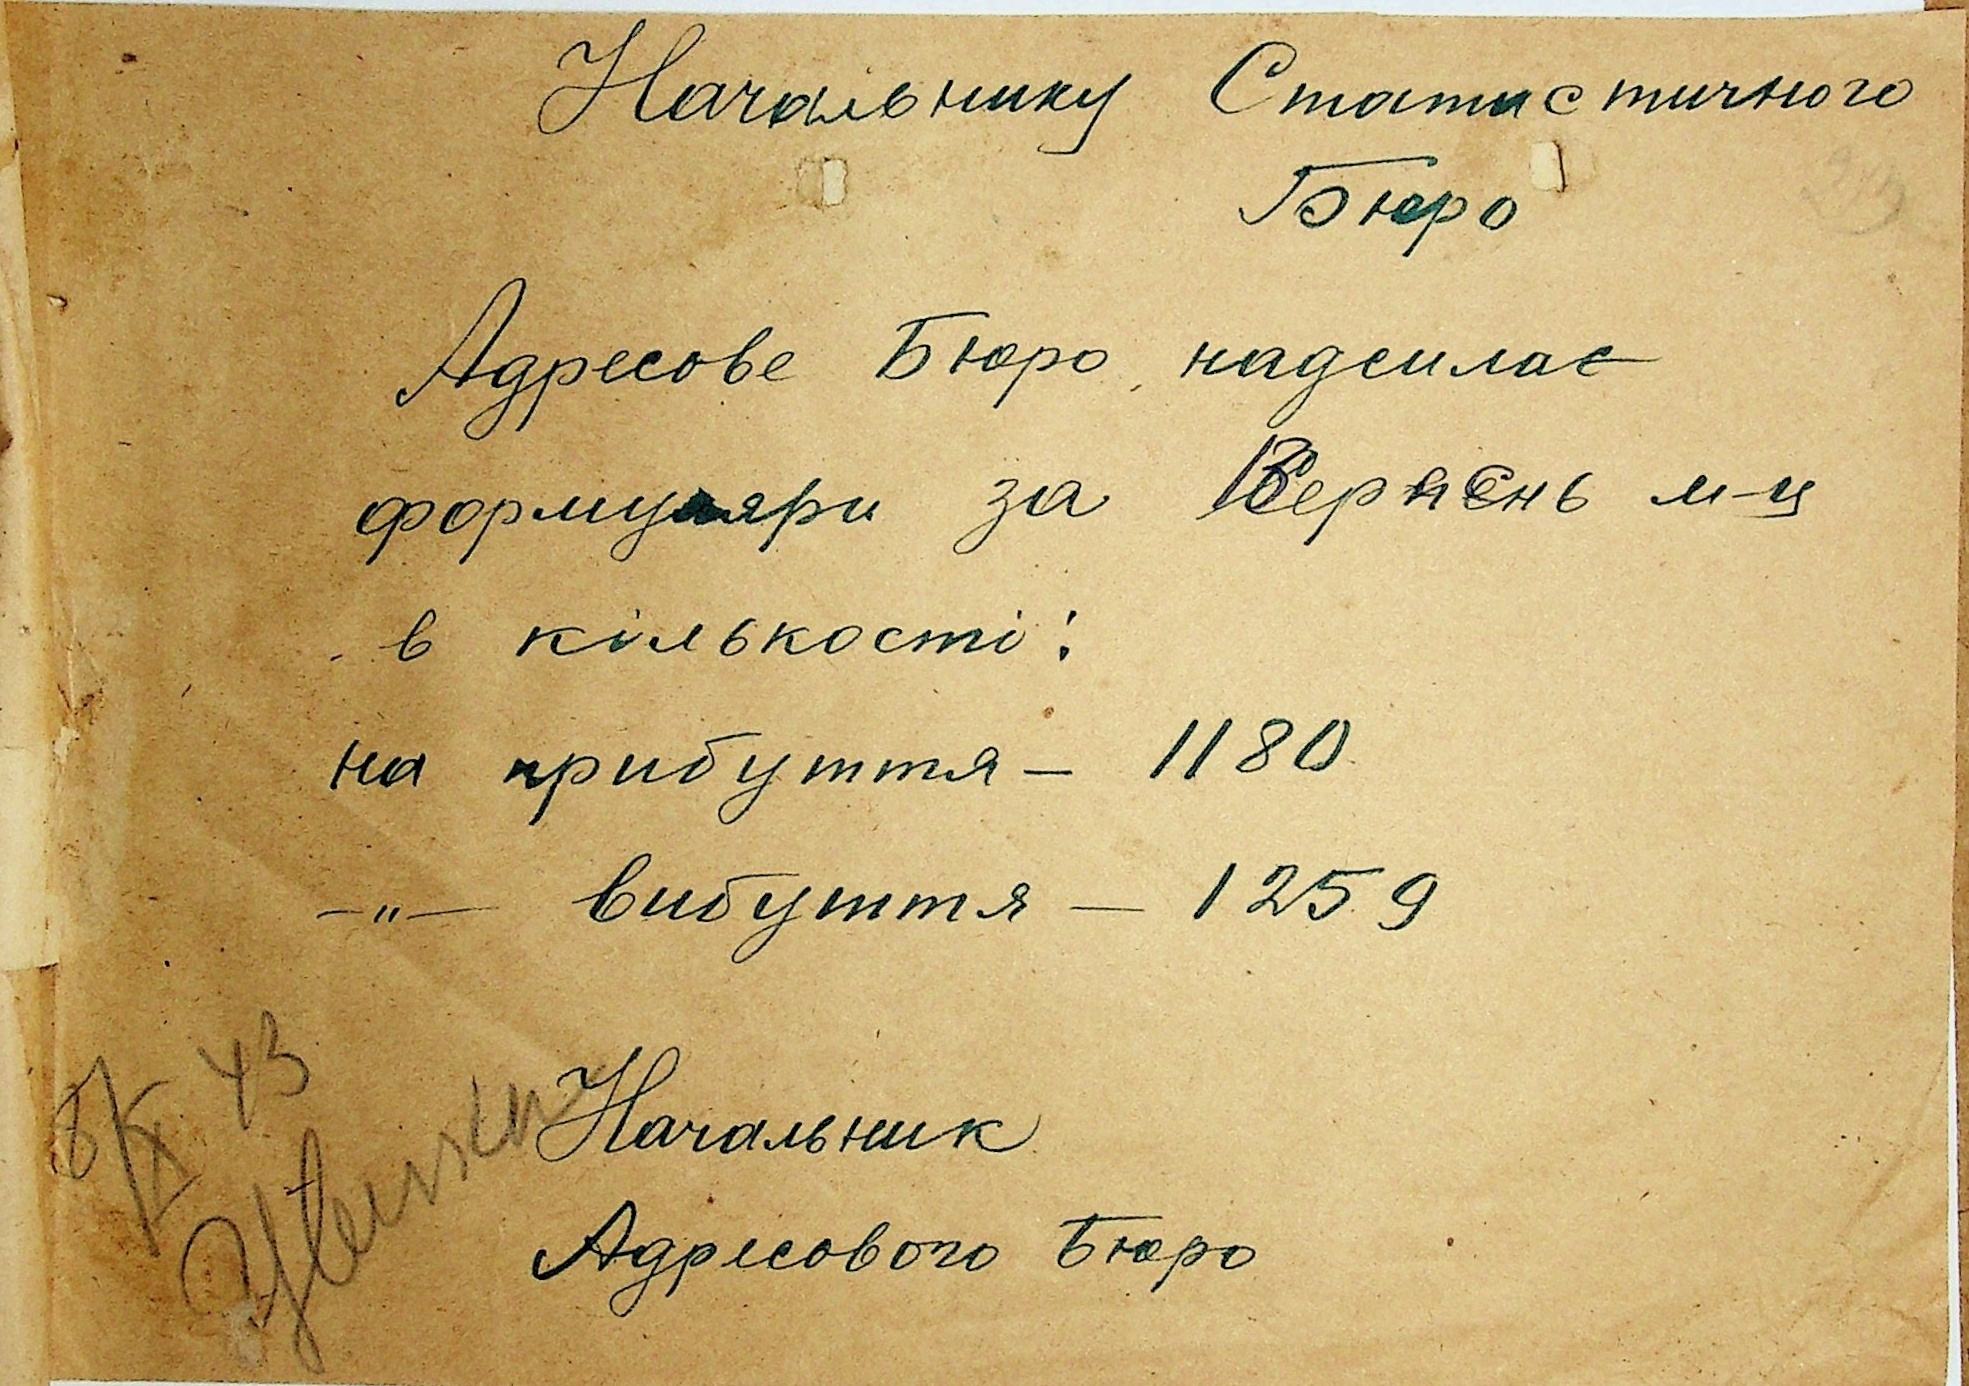 Начальнику Статистичного
Бюро
Адресове Бюро надсилає
формуляри за Серпень м-ц
в кількості:
на прибуття — 1180
—"— вибуття — 1259
43
Начальник
Адресового Бюро